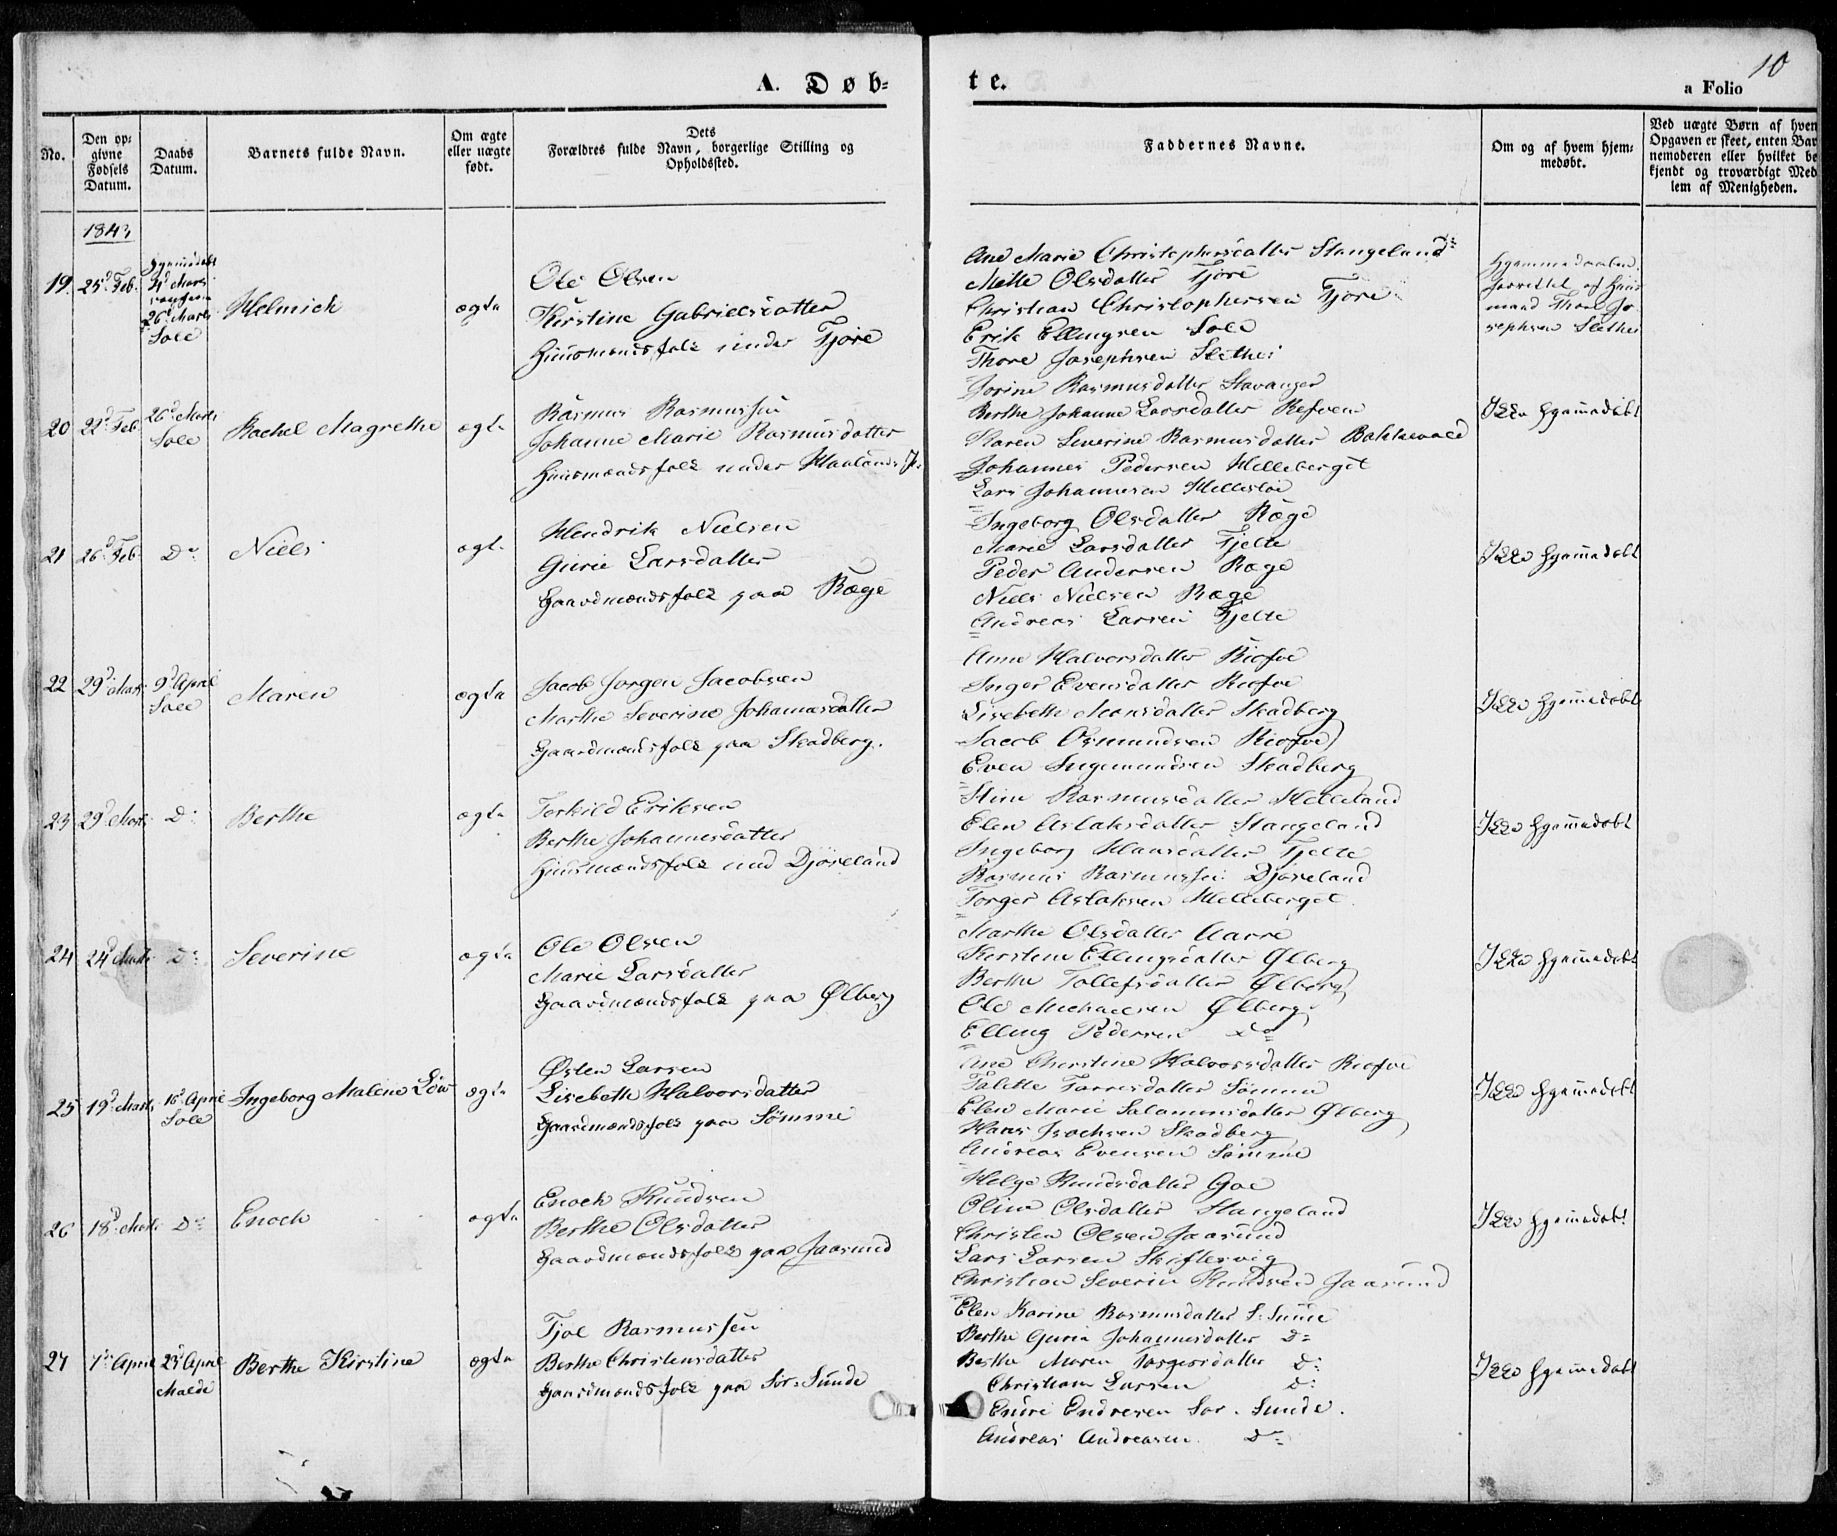 10
A. Døb-
te.
a Folio
No.
Den op-
givne
Fødsels
Datum.
Daabs
Datum.
Barnets fulde Navn.
Om ægte
eller uægte
født.
Dets
Forældres fulde Navn, borgerlige Stilling og
Opholdssted.
Faddernes Navne.
Om og af hvem hjem-
medøbt.
Ved uægte Børn af hvem
Opgaven er skeet, enten Bar
nemoderen eller hvilket be
kjendt og troværdigt Med
lem af Menigheden.
1843
19. 25d Feb.
Hjemmedøbt
26d Marts
Sole
Helmich
ægte
Ole Olsen
Kirstine Gabrielsdatter
Huusmandsfolk under Tjore
Ane Marie Christophersdatter Stangeland
Mette Olsdatter Tjore
Christian Christophersen Tjore
Erik Ellingsen Sole
Thore Josephsen Slethei
Hjemmedaaben
forrettet af Huus
mand Thore Jo
sephsen Slethei
20 22d Feb
26d Marts
Sole
Rachel Magrethe
ægte
Rasmus Rasmussen
Johanne Marie Rasmusdatter
Huusmandsfolk under Haaland
Jorine Rasmusdatter Stavanger
Berthe Johanne Larsdatter Refven
Karen Severine Rasmusdatter Bakkevold
Johannes Pedersen Helleberget
Lars Johannesen Hellestøe
Ikke hjemmedøbt
21 26d Feb
Do
Niels
ægte
Hendrik Nielsen
Gurie Larsdatter
Gaardmandsfolk paa Ræge
Ingeborg Olsdatter Ræge
Marie Larsdatter Tjelte
Peder Andersen Ræge
Niels Nielsen Ræge
Andreas Larsen Tjelte
Ikke hjemmedøbt
22 29d Marts
9d April
Sole
Maren
ægte
Jacob Jørgen Jacobsen
Marthe Severine Johannesdatter
Gaardmandsfolk paa Skadberg.
Anne Halvorsdatter Risfve
Inger Evensdatter Risfve
Lisebeth Monsdatter Skadberg
Jacob Osmundsen Risfve
Even Ingemundsen Skadberg
Ikke hjemmedøbt
23 29d Marts
Do
Berthe
ægte
Torkild Eriksen
Berthe Johannesdatter
Huusmandsfolk und Djøseland
Stine Rasmusdatter Helleland
Elen Aslaksdatter Stangeland
Ingeborg Hansdatter Tjelte
Rasmus Rasmussen Djøseland
Torger Aslaksen Helleberget
Ikke hjemmedøbt
24 24d Marts
Do
Severine
ægte
Ole Olsen
Marie Larsdatter
Gaardmandsfolk paa Ølberg
Marthe Olsdatter Aarre
Kerstine Ellingsdatter Ølberg
Berthe Tollefsdatter Ølberg
Ole Michaelsen Ølberg
Elling Pedersen Do
Ikke hjemmedøbt
25 19d Marts
16d April
Sole
Ingeborg Malene
ægte
Østen Larsen
Lisebeth Halvorsdatter
Gaardmandsfolk paa Sømme
Ane Christine Halvorsdatter Risfve
Talette Torresdatter Sømme
Elen Marie Salamonsdatter Ølberg
Hans Isachsen Skadberg
Andreas Evensen Sømme
Ikke hjemmedøbt
26 18d Marts
Do
Enoch
ægte
Enoch Knudsen
Berthe Olsdatter
Gaardmandsfolk paa Jaasund
Helge Knudsdatter Goe
Oline Olsdatter Stangeland
Christen Olsen Jaasund
Lars Larsen Skiftesvig
Christian Severin Knudsen Jaasund
Ikke hjemmedøbt
27 7de April
23d April
Malde
Berthe Kirstine
ægte
Tjøl Rasmussen
Berthe Christensdatter
Gaardmandsfolk paa Sør-Sunde
Elen Karine Rasmusdatter S. Sunde
Berthe Guria Johannesdatter Do
Berthe Maren Torgersdatter Do
Christian Larsen Do
Endre Endresen Sør-Sunde.
Andreas Andreasen Do
Ikke hjemmedøbt